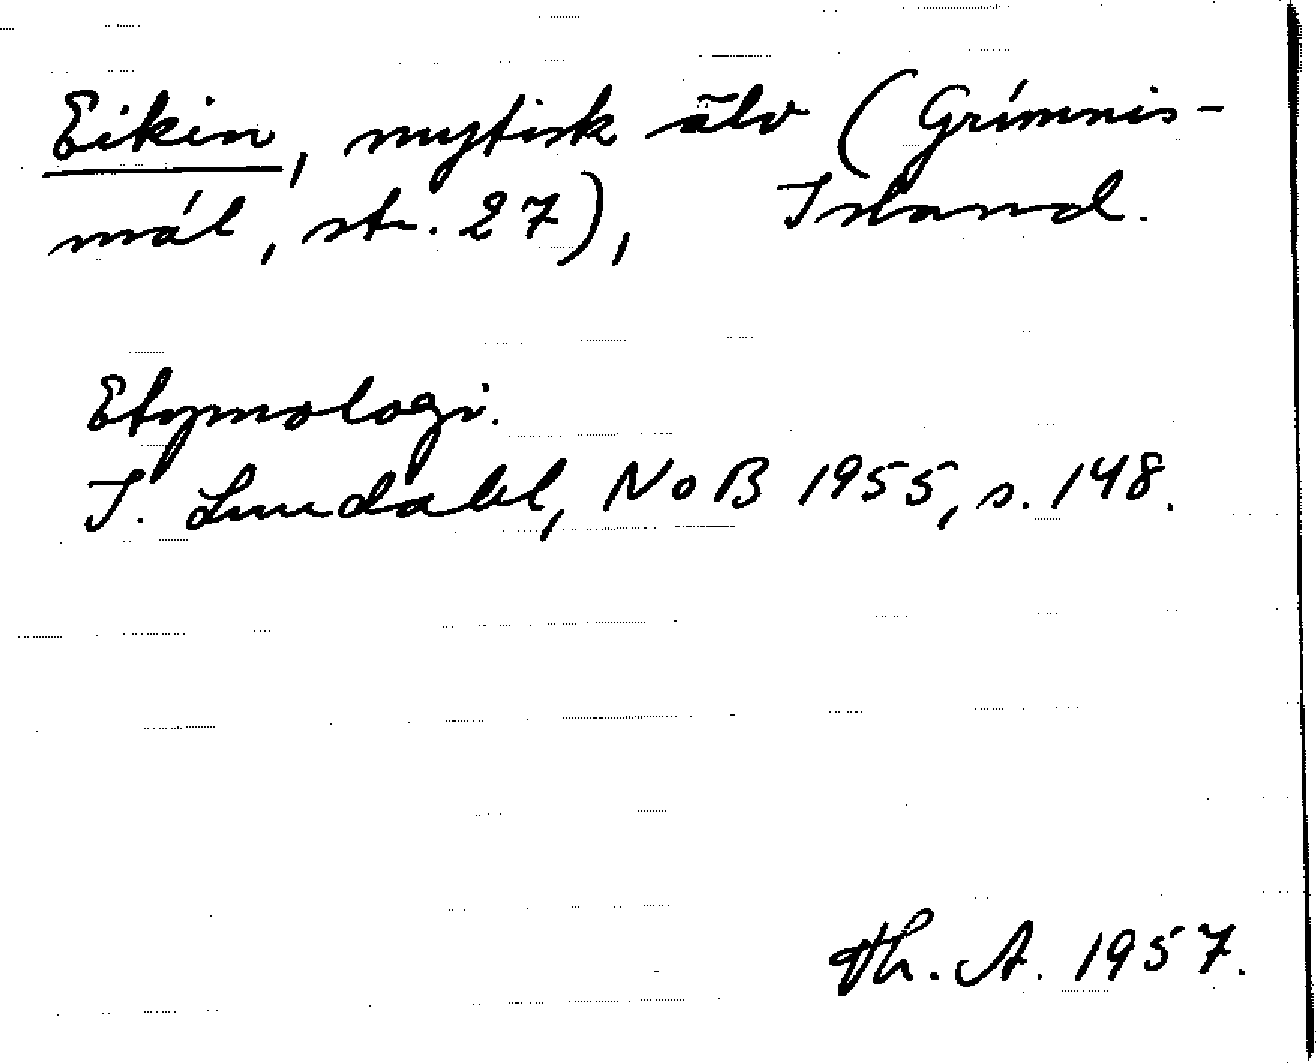 Eikin, mytisk älv (Grímnis-
mál, st. 27), Island.
Etymologi.
I. Lindahl, NoB 1955, s. 148.
Th. A. 1957.